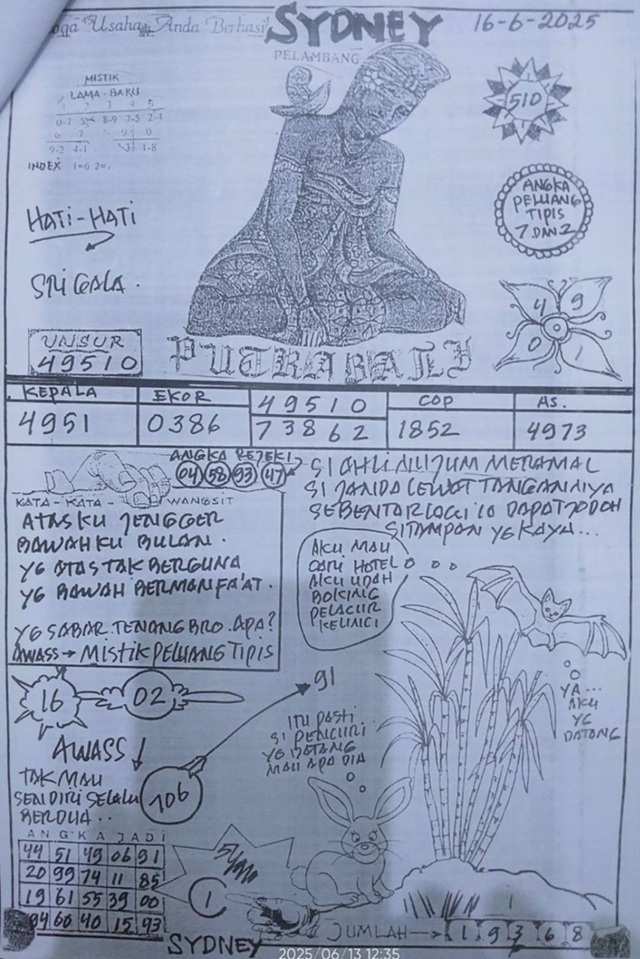 Usaha Anda Berhasil
SYDNEY
16-6-2025
PELAMBANG
MISTIK
LAMA - BARU
INDEX
510
HATI-HATI
ANGKA
PELUANG
TIPIS
7 DAN 2
SRIGALA.
4 9
0 1
UNSUR
49510
PUTRABALI
KEPALA
EKOR
49510
COP
AS.
4951
0386
73862
1852
4973
ANGKA REJEKI
04 58 93 47
KATA - KATA - WANGSIT
ATASKU JENGGER
BAWAHKU BULAN.
YG ATAS TAK BERGUNA
YG BAWAH BERMANFA'AT.
YG SABAR. TENANG BRO. APA?
AWASS → MISTIK PELUANG TIPIS
SI AHLI NUJUM MERAMAL
SI JANDA LEWAT TANGANNYA
SEBENTAR LAGI IA DAPAT JODOH
SI TAMPAN YG KAYA...
AKU MAU
CARI HOTEL
AKU UDAH
BOKING
PELACUR
KELINCI
YA...
AKU
YG
DATANG
16
02
91
ITU PASTI
SI PENCURI
YG DATANG
MAU APA DIA
AWASS
106
TAK MAU
SENDIRI SELALU
BERDUA..
ANGKA JADI
44 51 49 06 91
20 99 74 11 85
19 61 55 39 00
94 60 40 15 93
1
JUMLAH → 1 9 3 6 8
SYDNEY
2025/06/13 12:35